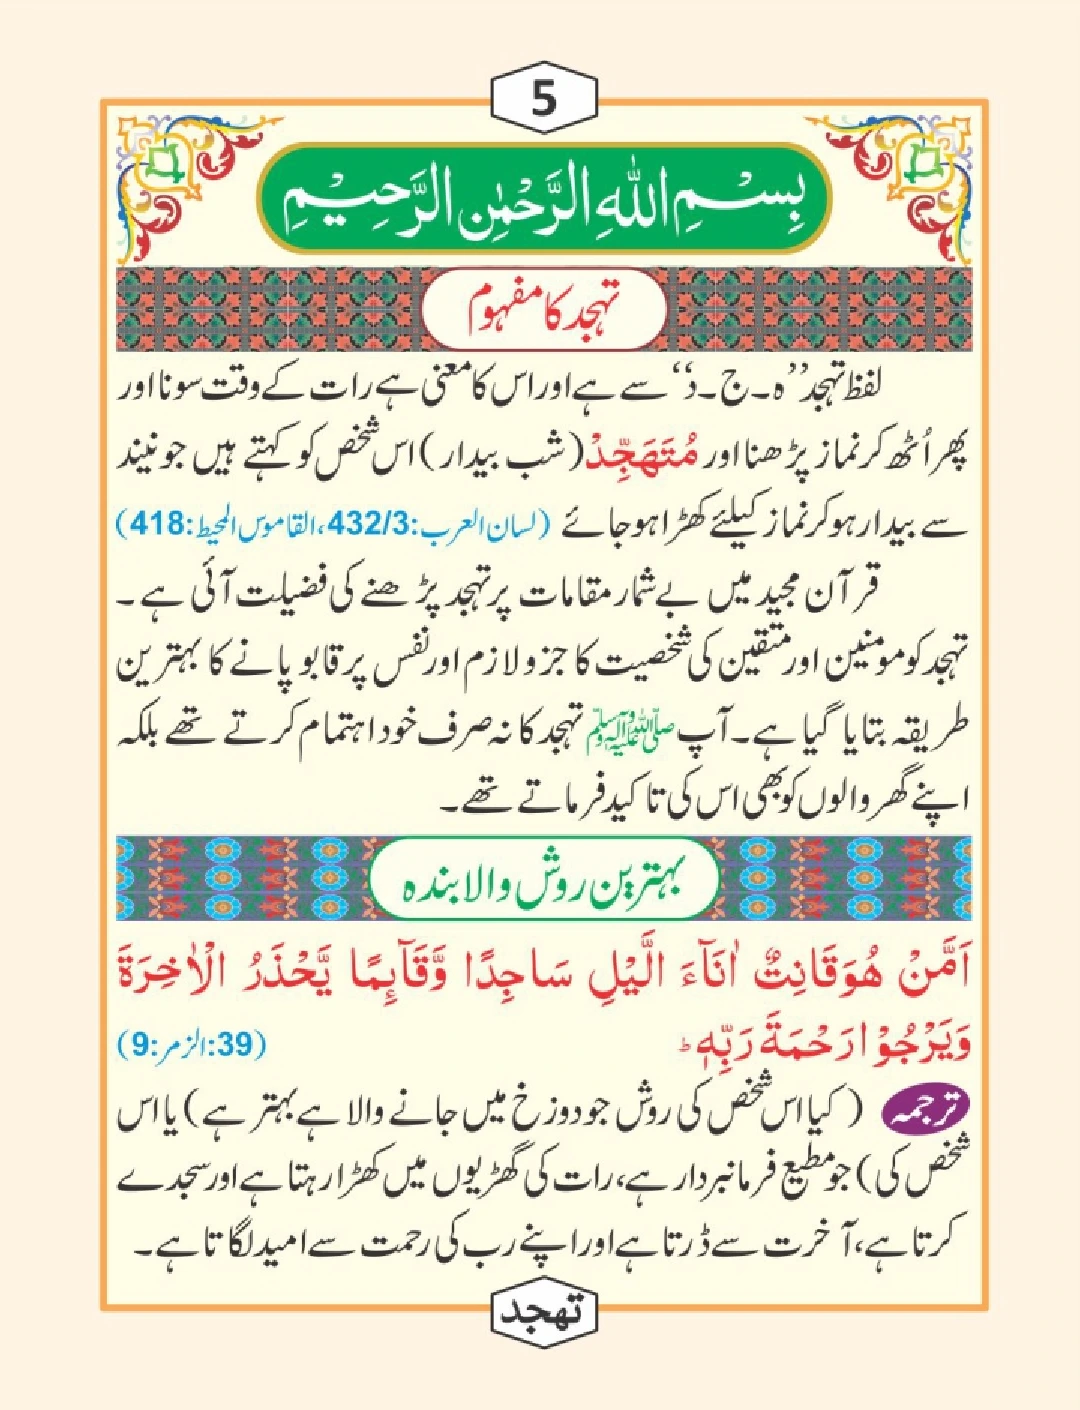 5
بِسْمِ اللهِ الرَّحْمٰنِ الرَّحِيْمِ
تہجد کا مفہوم
لفظ تہجد ’’ہ۔ج۔د‘‘ سے ہے اور اس کا معنی ہے رات کے وقت سونا اور
پھر اُٹھ کر نماز پڑھنا اور مُتَهَجِّدْ (شب بیدار) اس شخص کو کہتے ہیں جو نیند
سے بیدار ہو کر نماز کیلئے کھڑا ہو جائے (لسان العرب:432/3، القاموس المحیط:418)
قرآن مجید میں بے شمار مقامات پر تہجد پڑھنے کی فضیلت آئی ہے۔
تہجد کو مومنین اور متقین کی شخصیت کا جزو لازم اور نفس پر قابو پانے کا بہترین
طریقہ بتایا گیا ہے۔ آپ صلی اللہ علیہ وآلہ وسلم تہجد کا نہ صرف خود اہتمام کرتے تھے بلکہ
اپنے گھر والوں کو بھی اس کی تاکید فرماتے تھے۔
بہترین روش والا بندہ
اَمَّنْ هُوَ قَانِتٌ اٰنَآءَ الَّيْلِ سَاجِدًا وَّقَآئِمًا يَّحْذَرُ الْاٰخِرَةَ
وَيَرْجُوْا رَحْمَةَ رَبِّهٖ ؕ (39:الزمر:9)
ترجمہ (کیا اس شخص کی روش جو دوزخ میں جانے والا ہے بہتر ہے) یا اس
شخص کی) جو مطیع فرمانبردار ہے، رات کی گھڑیوں میں کھڑا رہتا ہے اور سجدے
کرتا ہے، آخرت سے ڈرتا ہے اور اپنے رب کی رحمت سے امید لگاتا ہے۔
تهجد